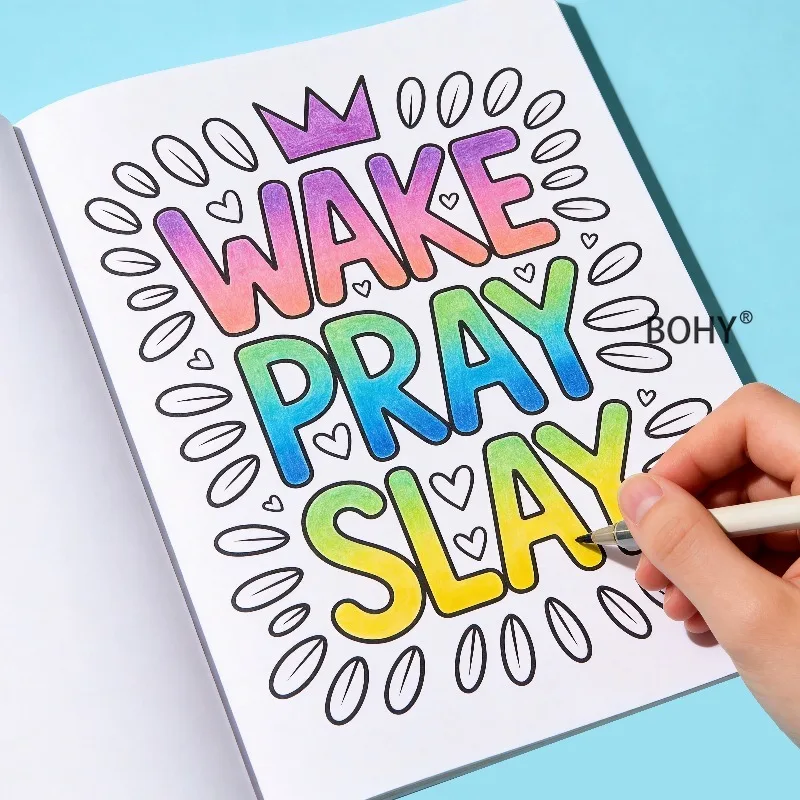 WAKE
PRAY
SLAY
BOHY®